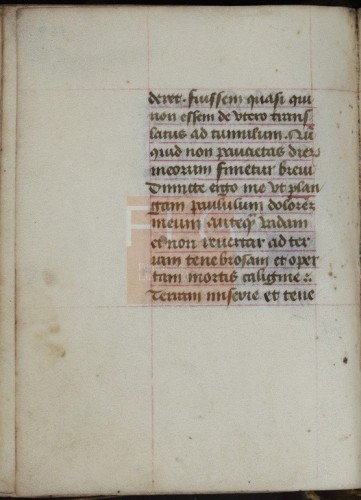 deret. fuissem quasi qui
non essem de utero trans
latus ad tumulum. Nū
quid non paucietas dierū
meorum finietur brevi
Dimitte ergo me ut plan
gam paululum dolorem
meum anteqz vadam
et non revertar ad ter
ram tenebrosam et oper
tam mortis caligine :.
Terram miserie et tene